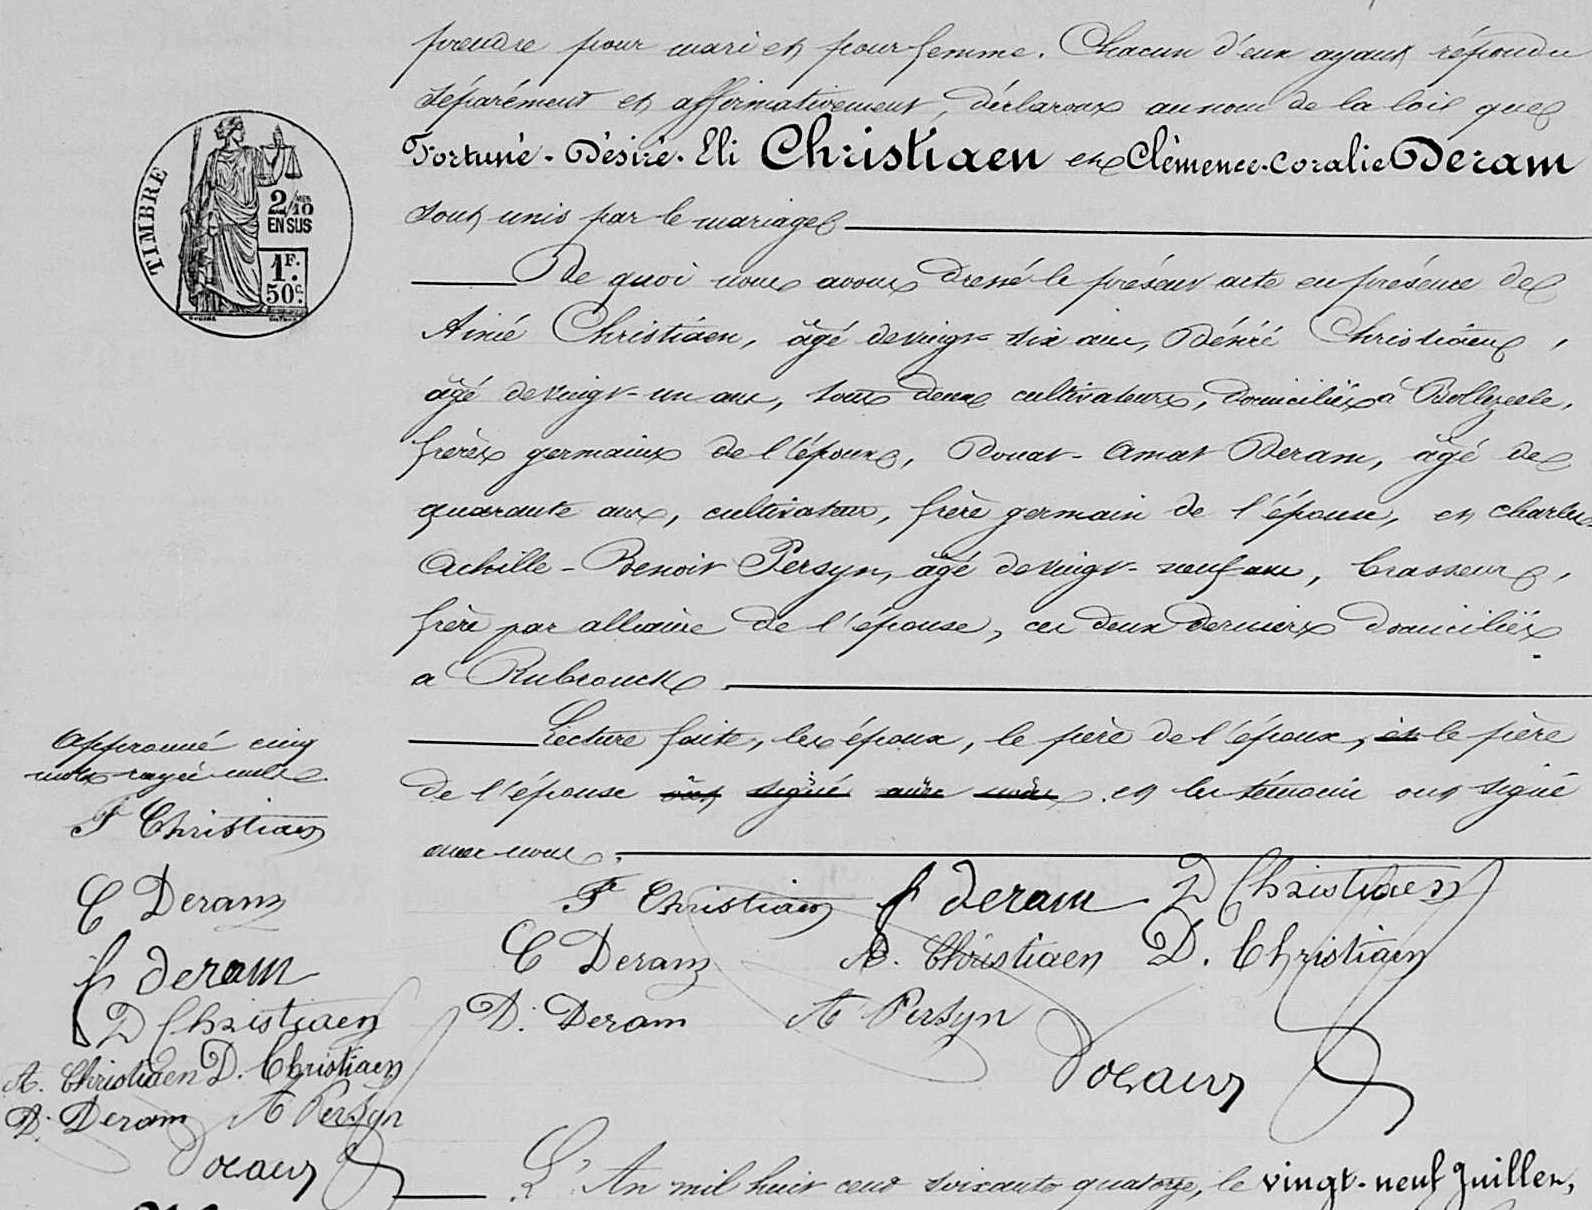 prendre pour mari et pour femme. Chacun d'eux ayant répondu
séparément et affirmativement, déclarons au nom de la loi que
Fortuné-Désiré-Eli Christiaen et Clémence-Coralie Deram
sont unis par le mariage
De quoi nous avons dressé le présent acte en présence de
Aimé Christiaen, âgé de vingt-six ans, Désiré Christiaen,
âgé de vingt-un ans, tous deux cultivateurs, domiciliés à Bollezeele,
frères germains de l'époux, Donat-Amat Deram, âgé de
quarante ans, cultivateur, frère germain de l'épouse, et Charles
Achille-Benoit Persyn, âgé de vingt-neuf ans, brasseur,
frère par alliance de l'épouse, ces deux derniers domiciliés
a Rubrouck
Lecture faite, les époux, le père de l'époux, et le père
de l'épouse ont signé avec nous et les témoins ont signé
avec nous.
TIMBRE
2/10
EN SUS
1F.
50c.
Approuvé cinq
mots rayés nuls
F Christiaen
C Deram
f deram
D Christiaen
A. Christiaen D. Christiaen
D. Deram A Persyn
F Christiaen f deram D Christiaen
C Deram A. Christiaen D. Christiaen
D. Deram A Persyn
L'An mil huit cent soixante quatorze, le vingt-neuf Juillet,